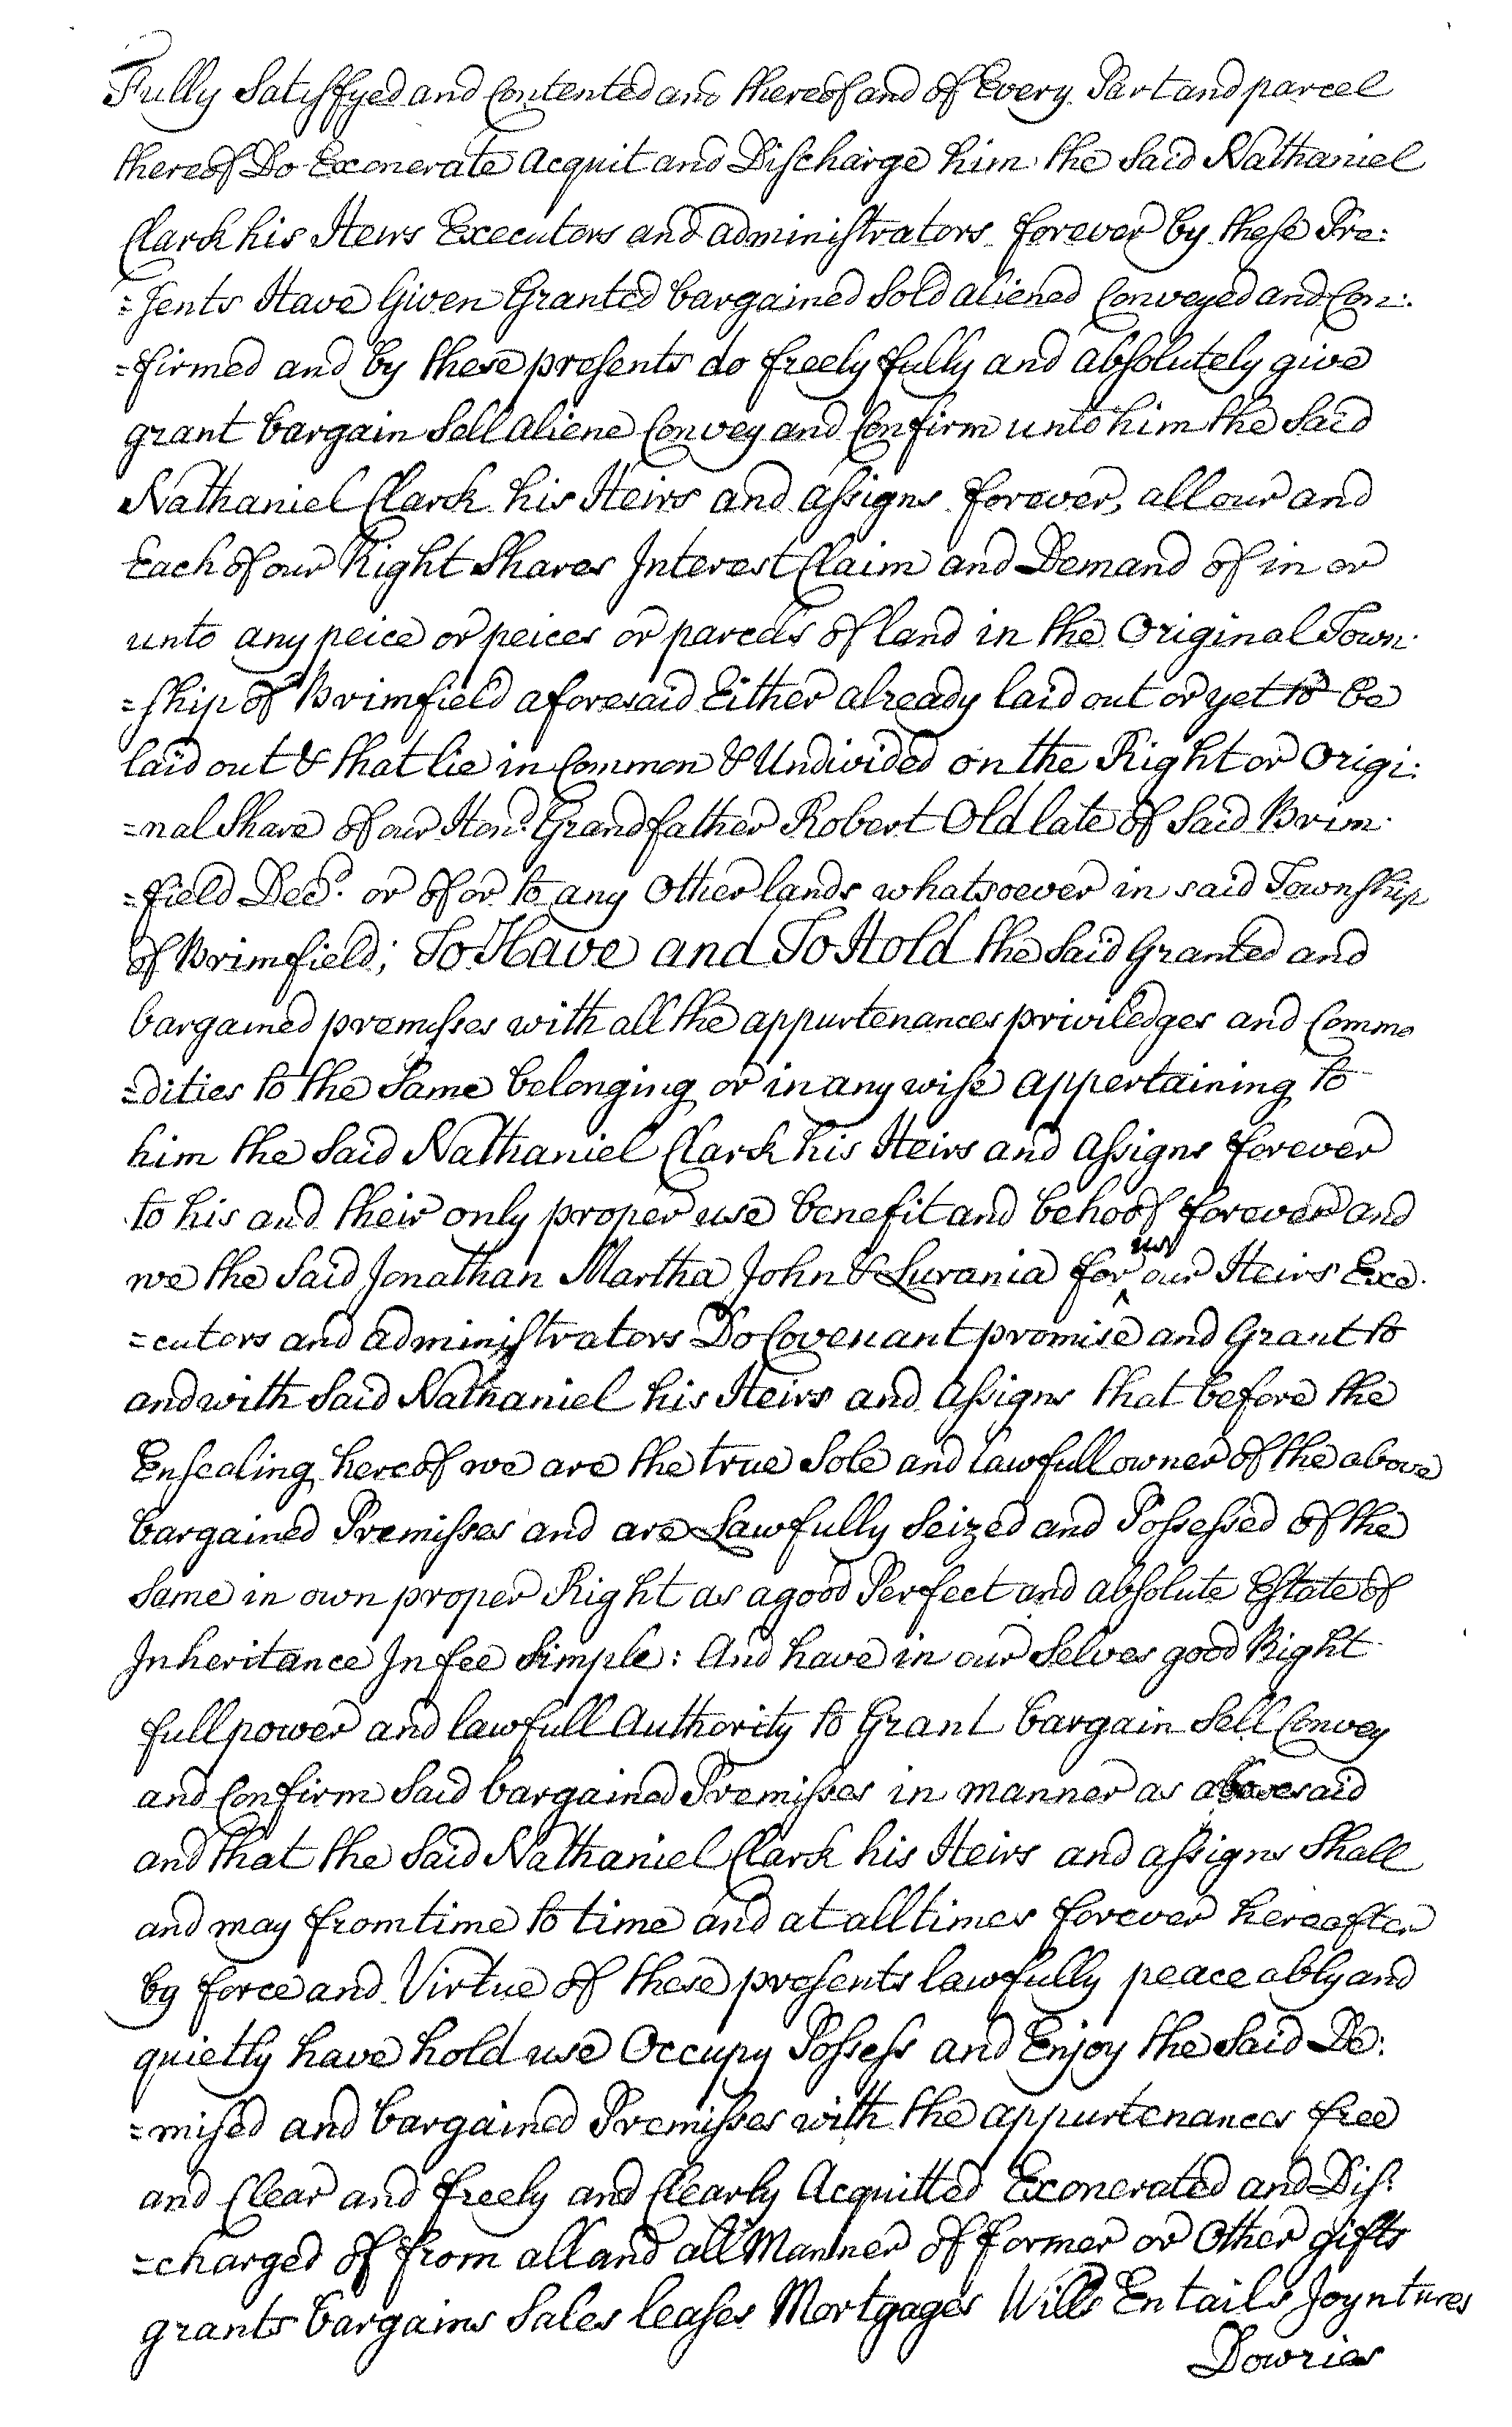 Fully Satisfyed and Contented and thereof and of Every Part and parcel
thereof Do Exonerate acquit and Discharge him the Said Nathaniel
Clark his Heirs Executors and administrators forever by these Pre:
=sents Have Given Granted bargained Sold aliened Conveyed and Con:
=firmed and by these presents do freely fully and absolutely give
grant bargain Sell aliene Convey and Confirm unto him the Said
Nathaniel Clark his Heirs and assigns forever, all our and
Each of our Right Shares Interest Claim and Demand of in or
unto any peice or peices or parcels of land in the Original Town
=ship of Brimfield aforesaid Either already laid out or yet to be
laid out & that lie in Common & Undivided on the Right or Origi:
=nal Share of our Hond. Grandfather Robert Old late of Said Brim
=field Decd. or of or to any Other lands whatsoever in said Township
of Brimfield; To Have and To Hold the Said Granted and
bargained premisses with all the appurtenances priviledges and Commo
=dities to the Same belonging or in any wise appertaining to
him the Said Nathaniel Clark his Heirs and assigns forever
to his and their only proper use benefit and behoof forever and
we the Said Jonathan Martha John & Lurania for us our Heirs Exe
=cutors and administrators Do Covenant promise and Grant to
and with Said Nathaniel his Heirs and assigns that before the
Ensealing hereof we are the true Sole and lawfull owner of the above
bargained Premisses and are Lawfully Seized and Possessed of the
Same in own proper Right as a good Perfect and absolute Estate of
Inheritance In fee Simple: And have in our Selves good Right
full power and lawfull Authority to Grant bargain Sell Convey
and Confirm Said bargained Premisses in manner as abovesaid
and that the Said Nathaniel Clark his Heirs and assigns Shall
and may from time to time and at all times forever hereafter
by force and Virtue of these presents lawfully peaceably and
quietly have hold use Occupy Possess and Enjoy the Said De:
=mised and bargained Premisses with the appurtenances free
and Clear and freely and Clearly Acquitted Exonerated and Dis:
=charged of from all and all Manner of former or Other gifts
grants bargains Sales leases Mortgages Wills Entails Joyntures
Dowries